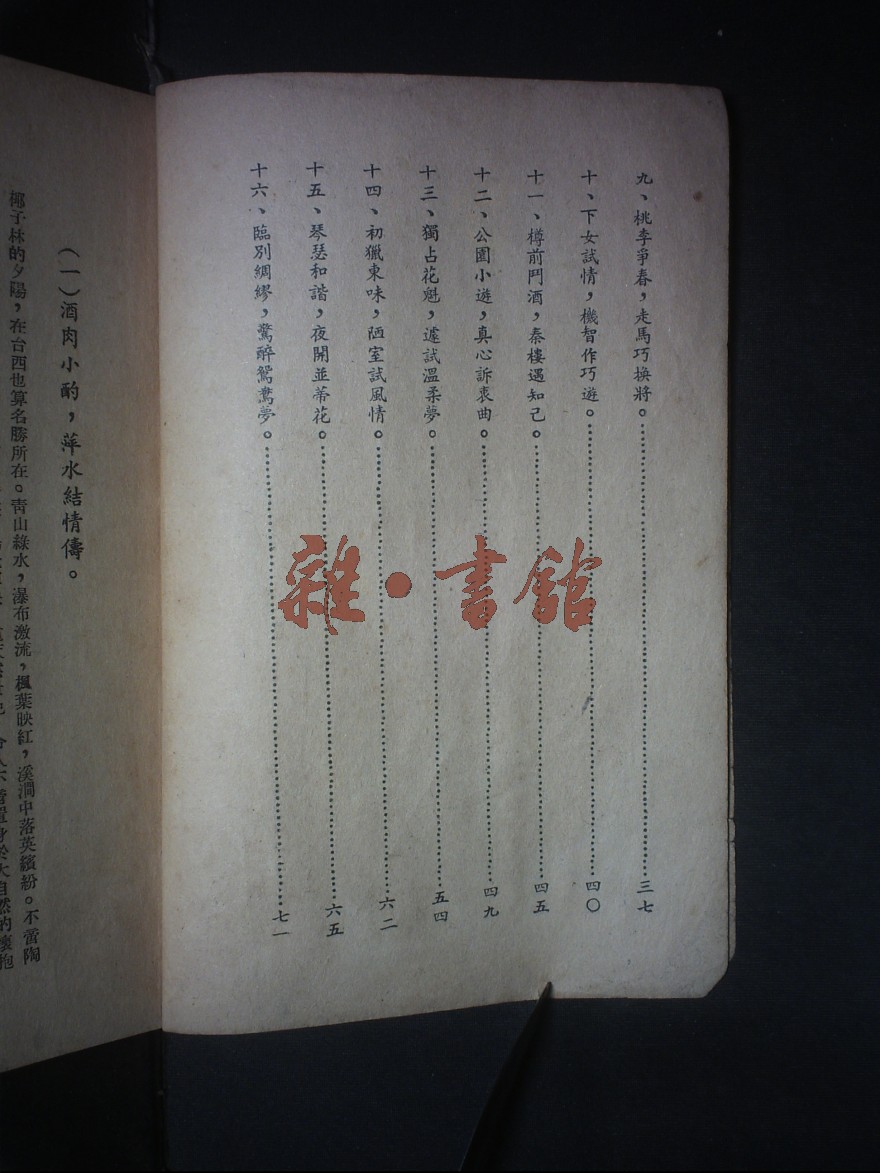 九、桃李爭春，走馬巧換將。……三七
十、下女試情，機智作巧遊。……四〇
十一、樽前鬥酒，秦樓遇知己。……四五
十二、公園小遊，真心訴衷曲。……四九
十三、獨占花魁，遽試溫柔夢。……五四
十四、初獵東味，陋室試風情。……六二
十五、琴瑟和諧，夜開並蒂花。……六五
十六、臨別綢繆，驚醉鴛鴦夢。……七一
雜·書館
(一)酒肉小酌，萍水結情儔。
椰子林的夕陽，在台西也算名勝所在。靑山綠水，瀑布激流，楓葉映紅，溪澗中落英繽紛。不啻陶
身於大自然的懷抱